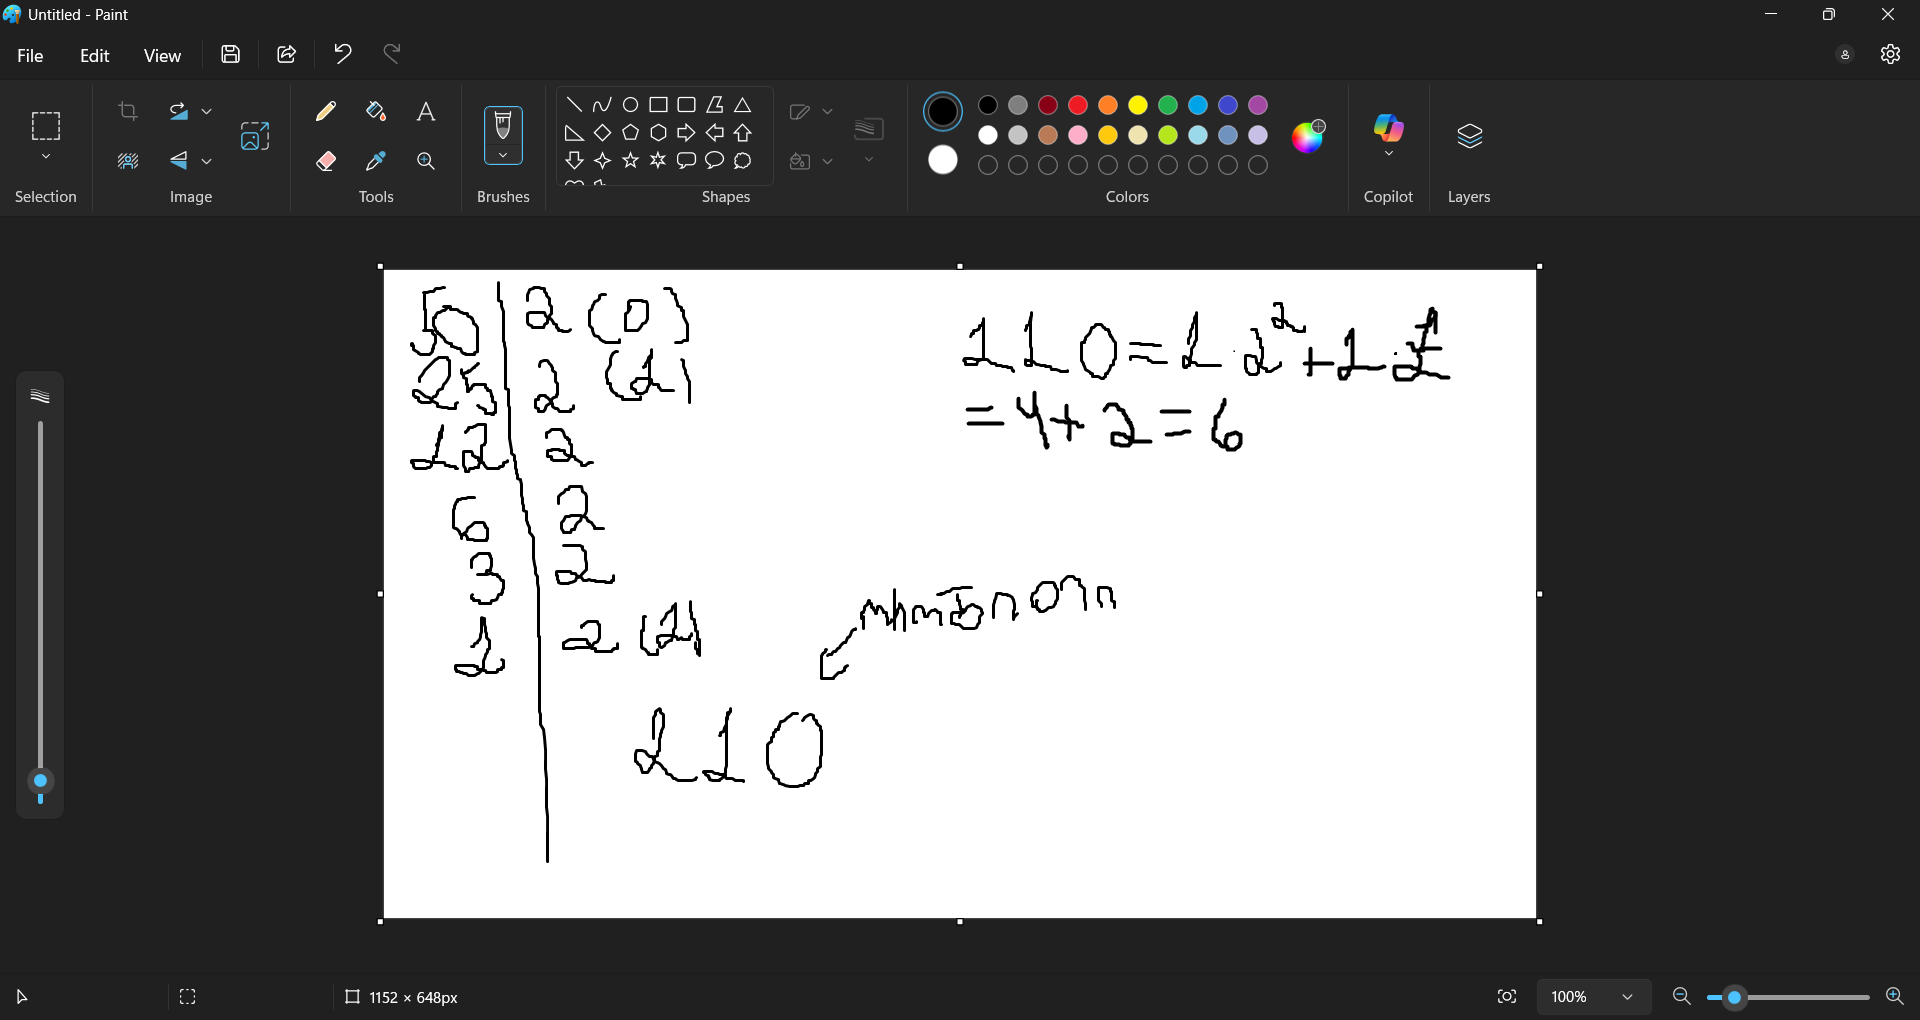 Untitled - Paint
File Edit View
Selection
Image
Tools
Brushes
Shapes
Colors
Copilot
Layers
50 2 (0)
25 2 (1)
12 2
6 2
3 2
1 2 (1)
110
110 = 1 · 2² + 1 · 2¹
= 4 + 2 = 6
1152 × 648px
100%